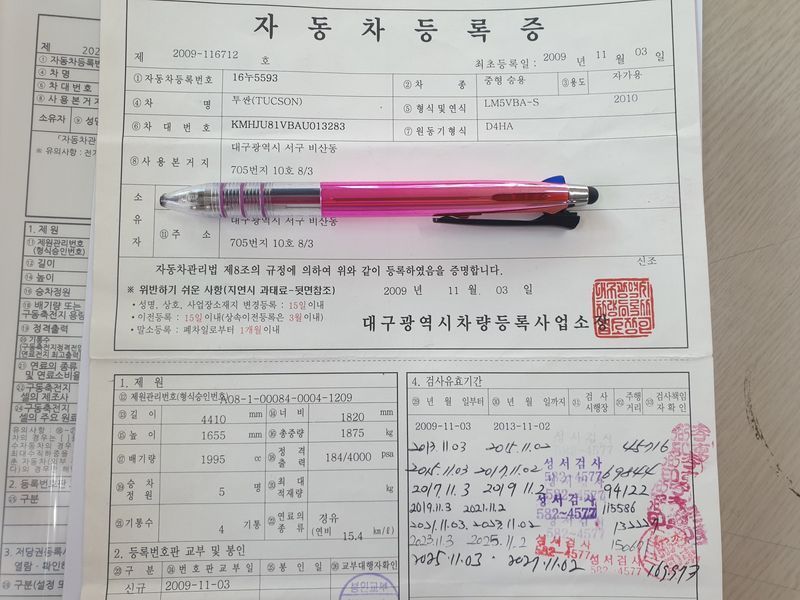 자 동 차 등 록 증
제 2009-116712 호
최초등록일 : 2009 년 11 월 03 일
① 자동차등록번호 16누5593 ② 차 종 중형 승용 ③용도 자가용
④ 차 명 투싼(TUCSON) ⑤ 형식 및 연식 LM5VBA-S 2010
⑥ 차 대 번 호 KMHJU81VBAU013283 ⑦ 원동기 형식 D4HA
⑧ 사 용 본 거 지 대구광역시 서구 비산동
705번지 10호 8/3
소
유
자
⑪ 주 소
대구광역시 서구 비산동
705번지 10호 8/3
신조
자동차관리법 제8조의 규정에 의하여 위와 같이 등록하였음을 증명합니다.
※ 위반하기 쉬운 사항(지연시 과태료-뒷면참조)
2009 년 11 월 03 일
• 성명, 상호, 사업장소재지 변경등록 : 15일이내
• 이전등록 : 15일이내(상속이전등록은 3월이내)
• 말소등록 : 폐차일로부터 1개월이내
대구광역시차량등록사업소장
1. 제 원
⑫ 제원관리번호(형식승인번호) A08-1-00084-0004-1209
⑬ 길 이 4410 mm ⑭ 너 비 1820 mm
⑮ 높 이 1655 mm ⑯ 총중량 1875 kg
⑰ 배기량 1995 cc ⑱ 정격출력 184/4000 psa
⑲ 승차정원 5 명 ⑳ 최대적재량 kg
㉑ 기통수 4 기통 ㉒ 연료의종류 경유
(연비 15.4 km/ℓ)
2. 등록번호판 교부 및 봉인
㉓ 구 분 ㉔ 번호판교부일 ㉕ 봉 인 일 ㉖ 교부대행자확인
신규 2009-11-03
봉인교부
4. 검사유효기간
년 월 일부터 년 월 일까지 검사시행장 주행거리 검사책임자확인
2009-11-03 2013-11-02
2013.11.03 2015.11.02 45716
2015.11.03 2017.11.02 성서검사 69844
582-4577
2017.11.3 2019.11.2 94122
2019.11.3 2021.11.2 성서검사 115586
582-4577
2021.11.03. 2023.11.02
2023.11.3 2025.11.2 성서검사
582-4577
2025.11.03 . 2027.11.02
제 202
① 자동차등록번
④ 차 명
⑥ 차 대 번 호
⑧ 사 용 본 거 지
소유자
1. 제원
제원관리번호
(형식승인번호)
길이
높이
승차정원
배기량 또는
정격출력
기통수
연료의 종류
및 연료소비율
구동축전지
셀의 제조사
구동축전지
셀의 주요 원료
2. 등록번호
구분
3. 저당권등록사
열람 · 확인하
구분(설정 또